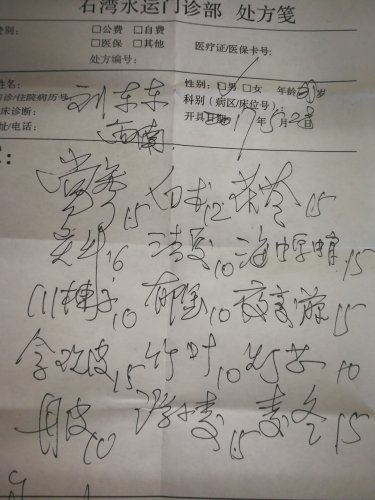 石湾水运门诊部 处方笺
费别: □公费 □自费
□医保 □其他 医疗证/医保卡号:
处方编号:
姓名: 刘东东 性别: □男 □女 年龄 岁
门诊/住院病历号: 科别(病区/床位号):
临床诊断: 开具日期: 2017年5
住址/电话: 石湾
党参15 白术12 茯苓15
10 海螵蛸15
川楝子10 郁金10 夜交藤15
合欢皮15 竹叶10 灯芯10
丹皮10 浮小麦15 麦冬15